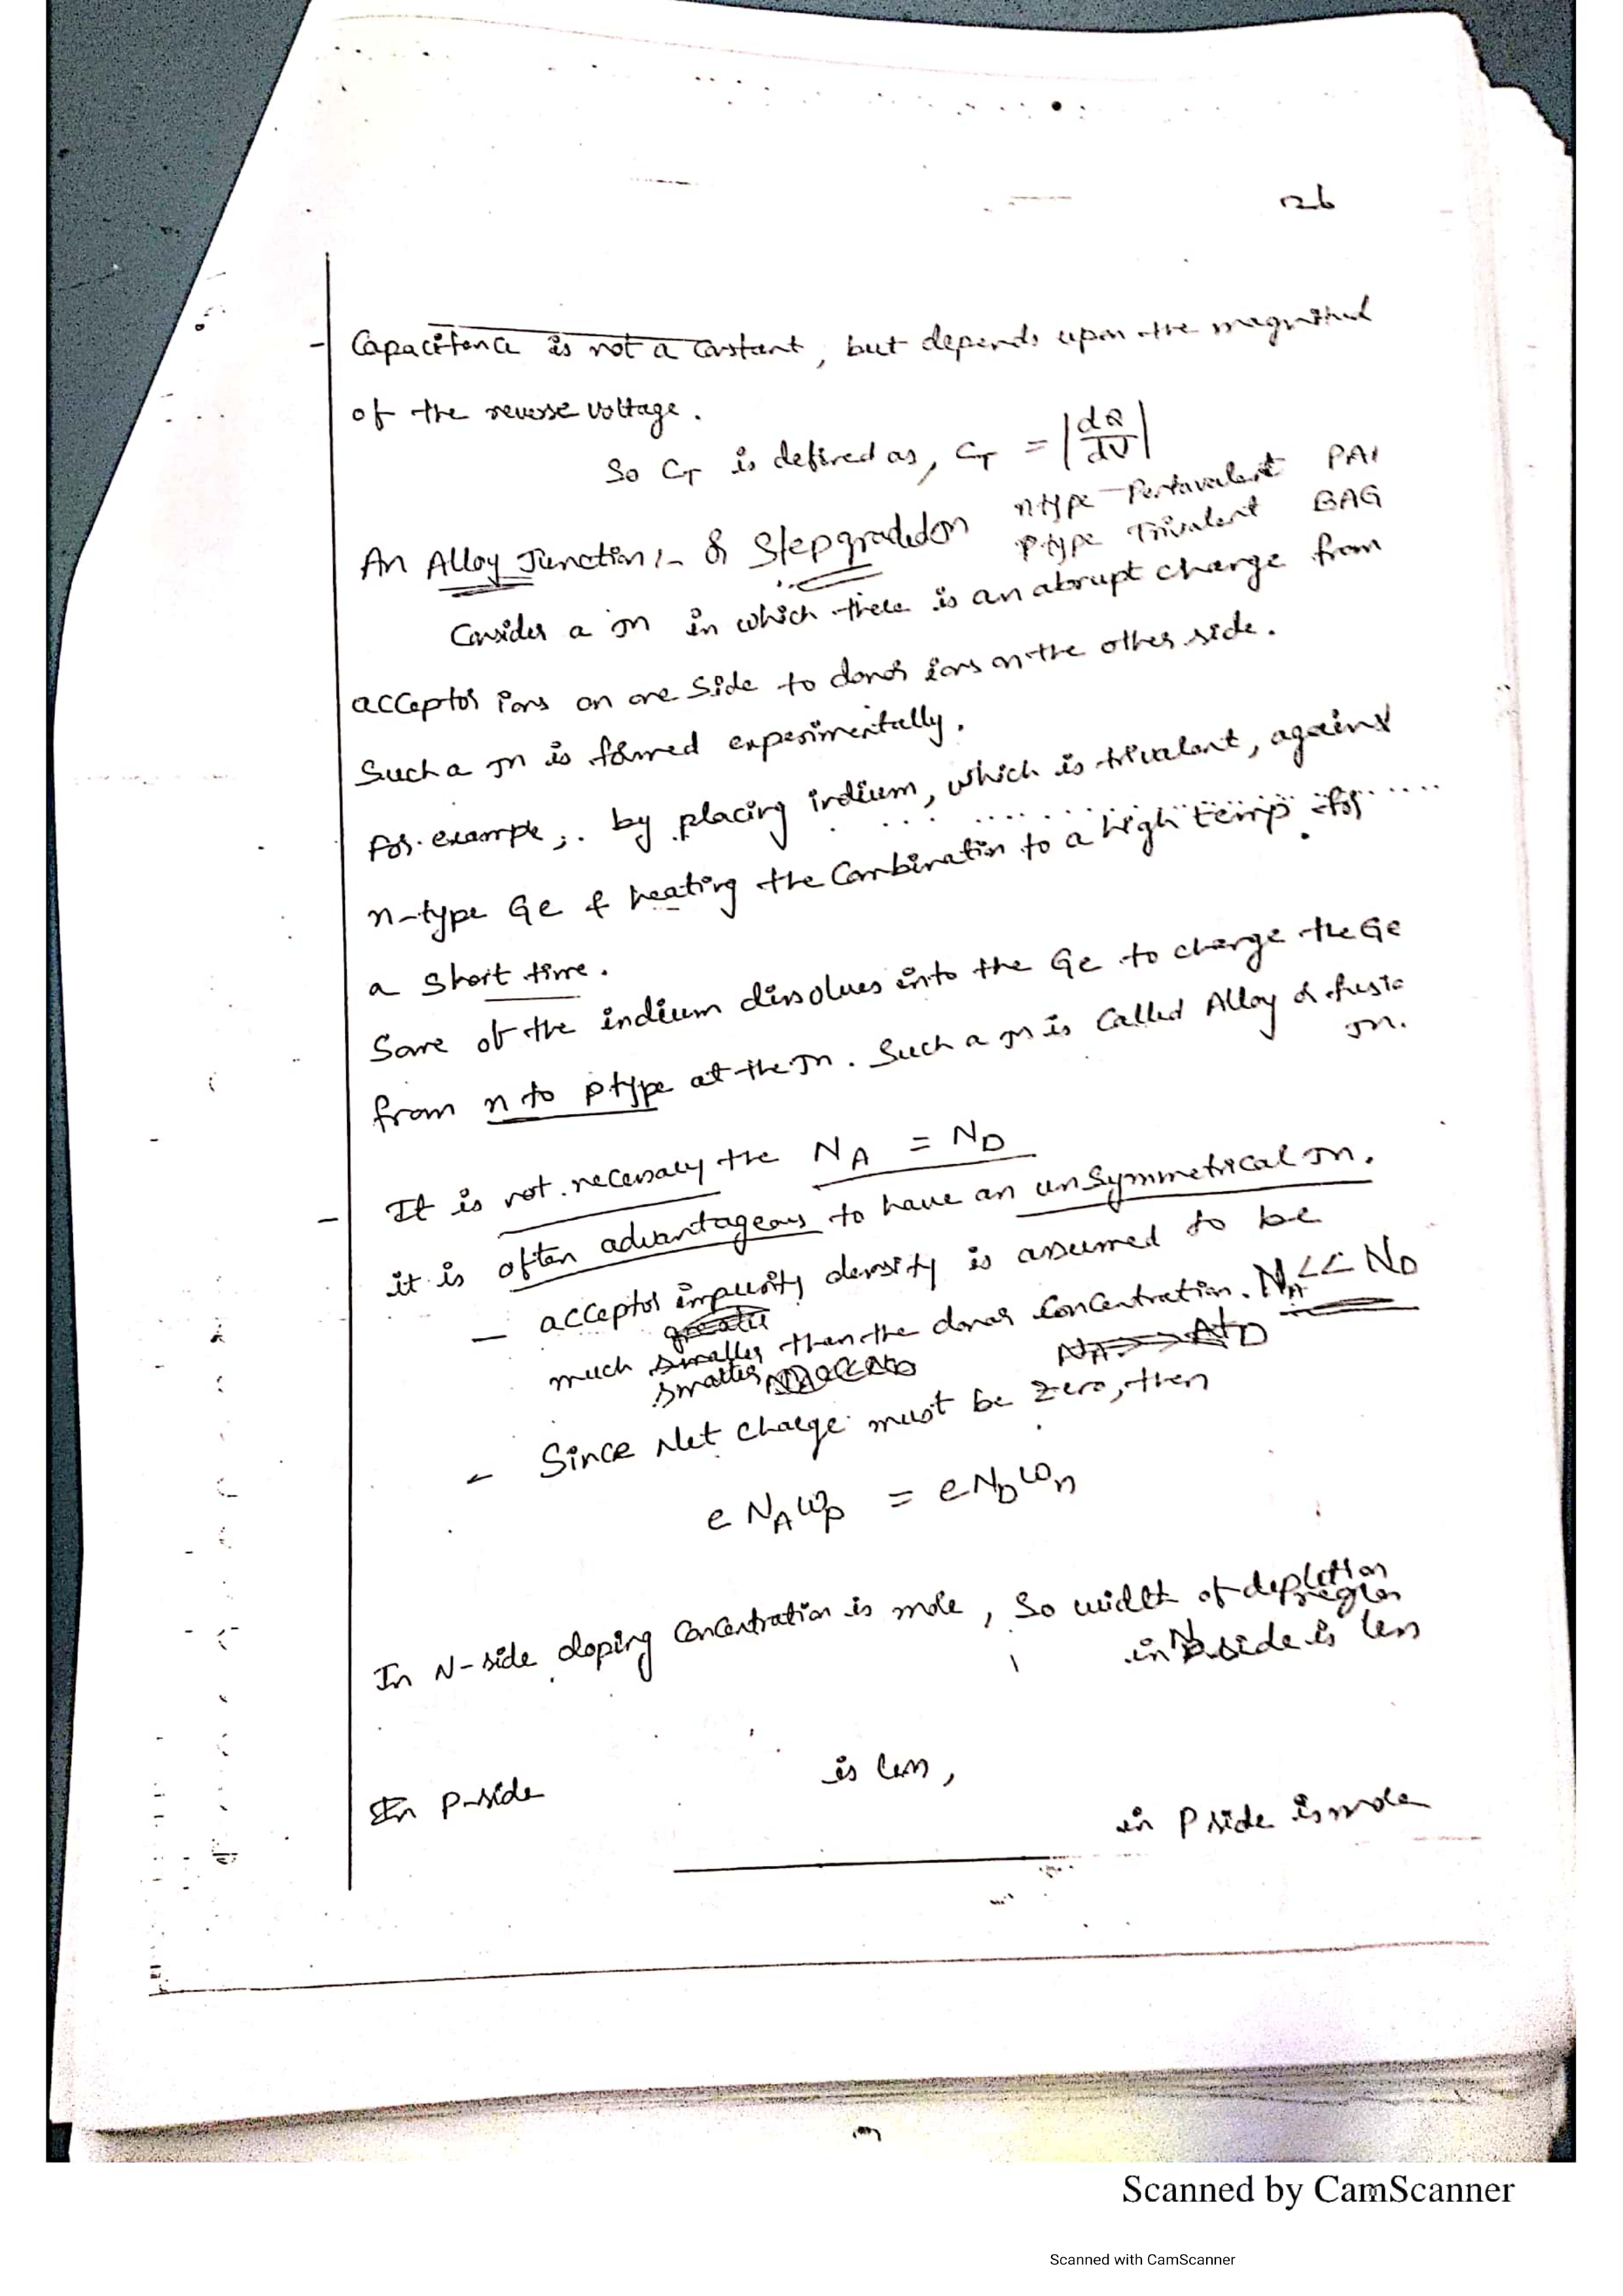 126
- Capacitance is not a constant, but depends upon the magnitud
of the reverse voltage.
So CT is defined as, CT = |dQ/dV|
n type - Pentavalent PAI
p type Trivalent BAG
An Alloy Junction :- or Stepgraded Jn
Consider a Jn in which there is an abrupt change from
acceptor ions on one side to donor ions on the other side.
Such a Jn is formed experimentally.
For example, by placing indium, which is trivalent, against
n-type Ge & heating the Combination to a high temp for
a short time.
Some of the indium dissolves into the Ge to change the Ge
from n to p type at the Jn. Such a Jn is Called Alloy or fusio
Jn.
- It is not necessary the NA = ND
it is often advantageous to have an unsymmetrical Jn.
- acceptor impurity density is assumed to be
much smaller than the donor Concentration. NA << ND
smaller
- Since Net Charge must be zero, then
e NA Wp = e ND Wn
In N-side doping Concentration is more, So width of depletion
region
in N side is less
In P-side is less,
in P side is more
Scanned by CamScanner
Scanned with CamScanner